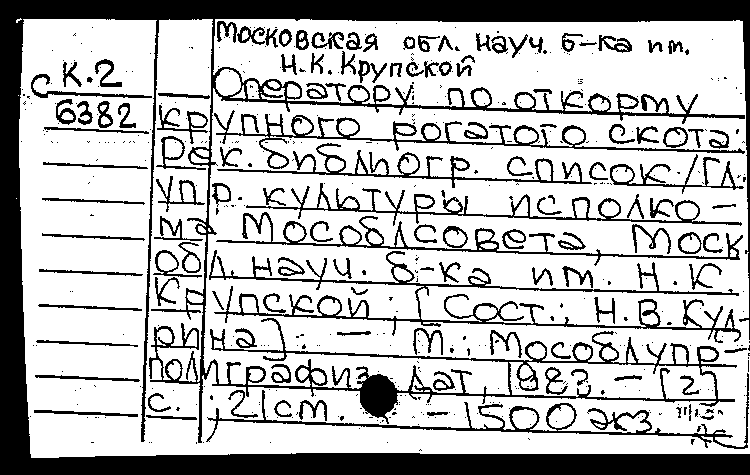 Московская обл. науч. б-ка им.
Н.К. Крупской
С К.2
6382
Оператору по откорму
крупного рогатого скота:
Рек. библиогр. список./Гл.
упр. культуры исполко-
ма Мособлсовета, Моск.
обл. науч. б-ка им. Н.К.
Крупской ; [Сост.: Н.В.Кул-
рина]. — М.: Мособлупр-
полиграфиздат, 1983. — [2]
с. ; 21 cm. — 1500 экз.